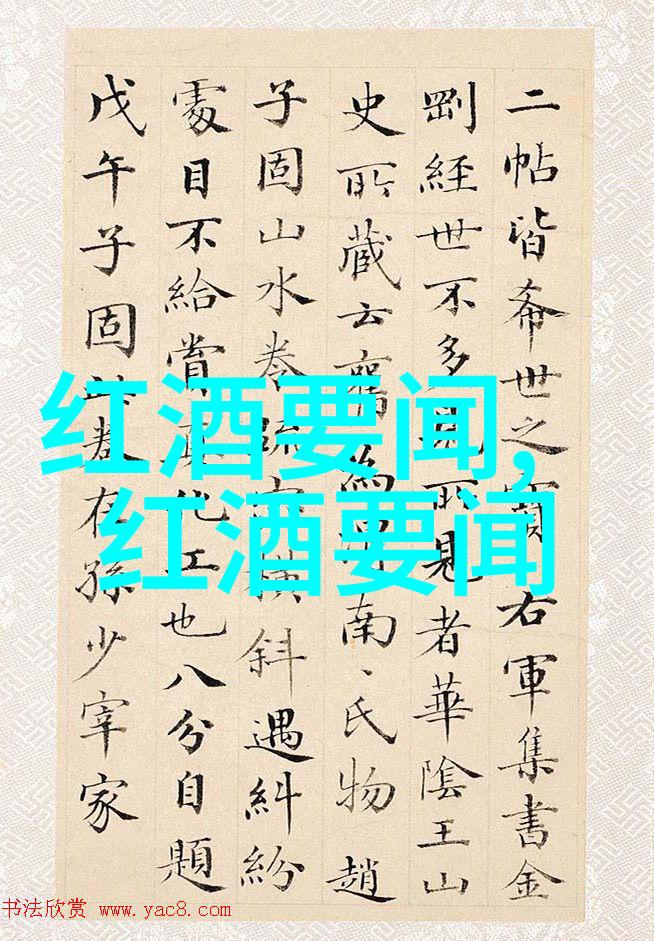 二帖皆希世之寶右軍集書金
剛經世不多見所見者華陰王山
史所藏云舊為南、氏物趙
子固山水卷疏密橫斜遇糾紛
處目不給賞真化工也八分自題
戊午子固此卷在孫少宰家
红酒要闻,
红酒要闻
书法欣赏 www.yac8.com